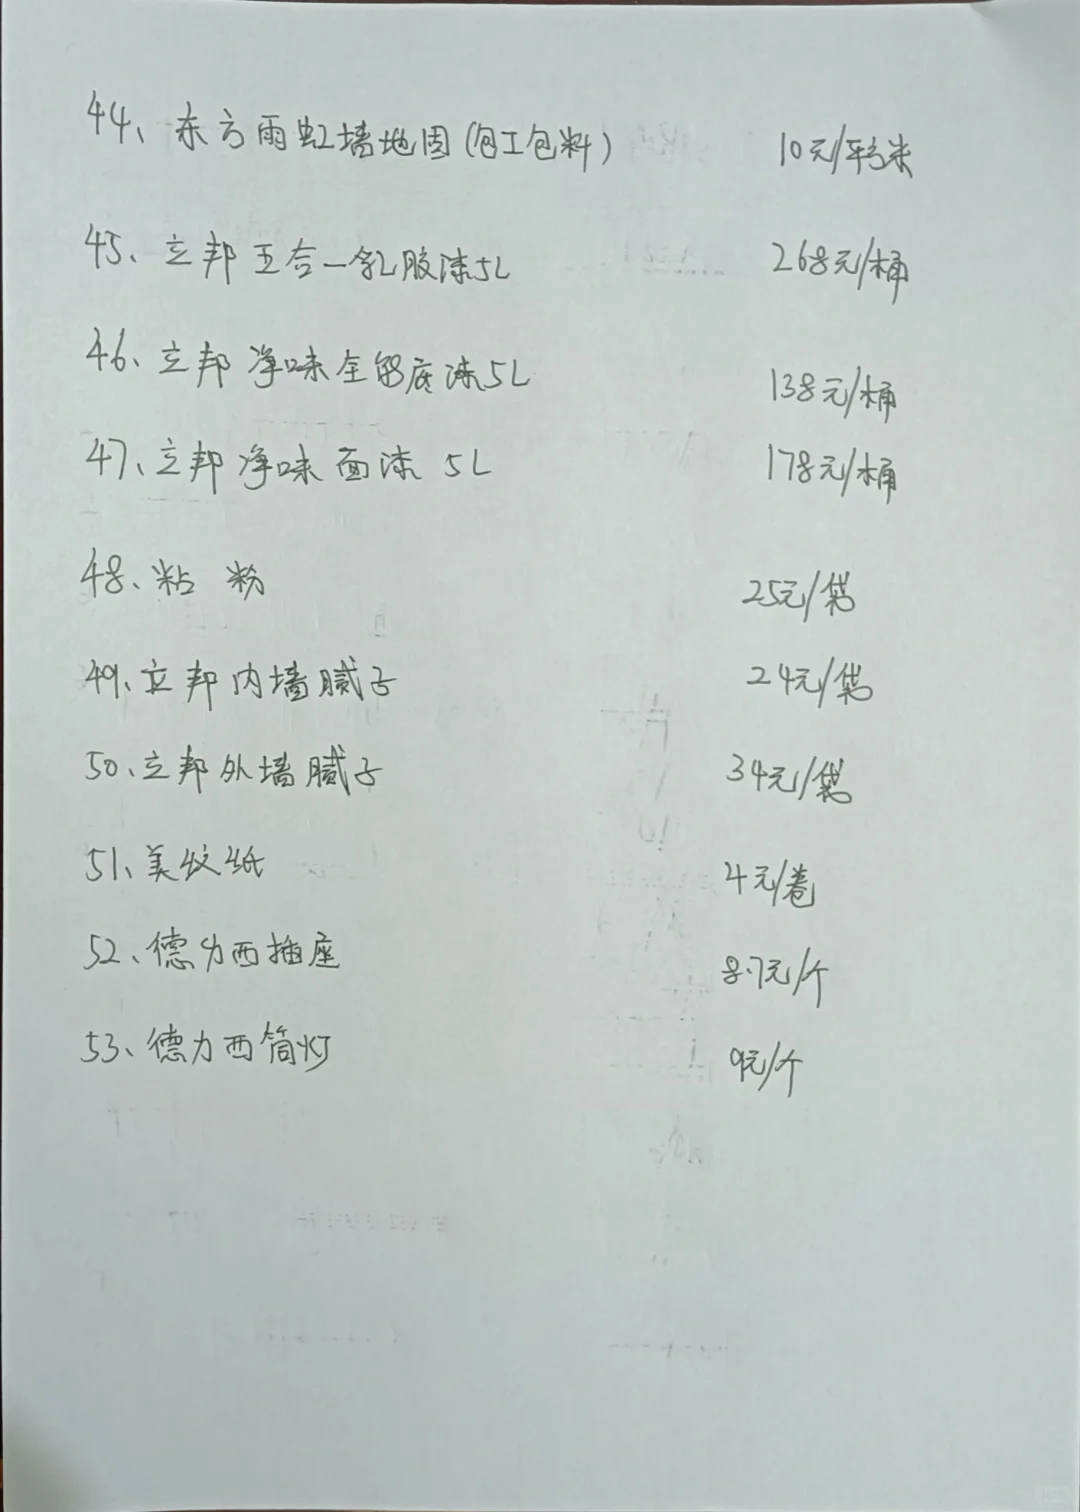 44、东方雨虹墙地固(包工包料) 10元/平方米
45、立邦五合一乳胶漆5L 268元/桶
46、立邦净味全能底漆5L 138元/桶
47、立邦净味面漆 5L 178元/桶
48、粘 粉 25元/袋
49、立邦内墙腻子 24元/袋
50、立邦外墙腻子 34元/袋
51、美纹纸 4元/卷
52、德力西插座 8.7元/个
53、德力西筒灯 9元/个